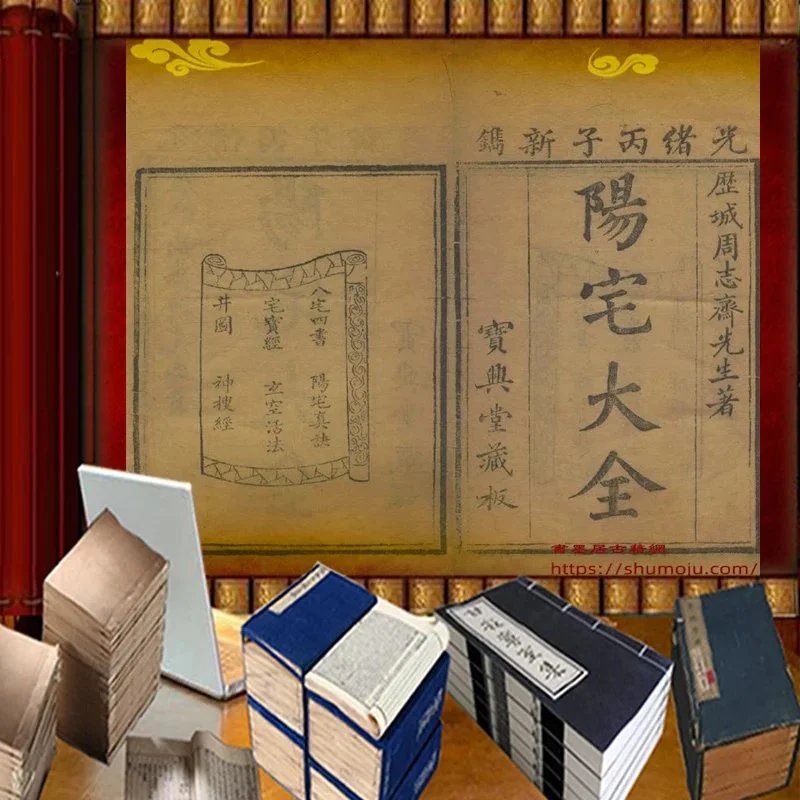 光緒丙子新鐫
歴城周志齋先生著
陽宅大全
寶興堂藏板
八宅四書 陽宅真訣
宅寶經 玄空活法
井圖 神搜經
書墨居古籍網
https://shumoju.com/